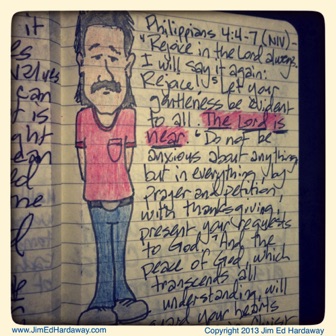 it
es
valves
can
r is
ght
can
ed
me
Philippians 4:4-7 (NIV) -
"Rejoice in the Lord always.
I will say it again:
Rejoice! 5 Let your
gentleness be evident
to all. The Lord is
near. 6 Do not be
anxious about anything
but in everything, by
prayer and petition,
with thanksgiving,
present your requests
to God. 7 And the
peace of God, which
transcends all
understanding, will
guard your hearts
www.JimEdHardaway.com
Copyright 2013 Jim Ed Hardaway